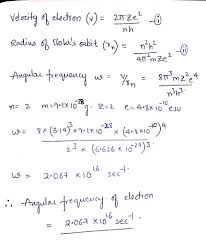 Velocity of electron (v) = 2πZe²/nh —(i)
Radius of Bohr's orbit (rₙ) = n²h²/4π²mZe² —(ii)
Angular frequency ω = v/rₙ = 8π³mZ²e⁴/n³h³.
n=2 m=9·1×10⁻²⁸g. Z=2 e=4·8×10⁻¹⁰ esu
ω = 8×(3·14)³×9·1×10⁻²⁸×(4·8×10⁻¹⁰)⁴/2³×(6·626×10⁻²⁷)³.
ω = 2·067×10¹⁶ sec⁻¹.
∴ Angular frequency of electron
= 2·067×10¹⁶ sec⁻¹.